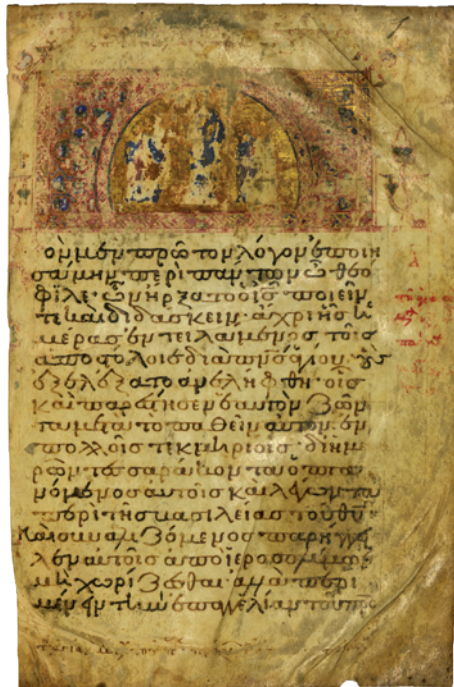 ὸν μὲν πρῶτον λόγον ἐποιη
σάμην περὶ πάντων ὦ θεό
φιλε· ὧν ἤρξατο ὁ ις ποιεῖν
τε καὶ διδάσκειν· ἄχρι ἧς ἡ
μέρας ἐντειλάμενος τοῖς
ἀποστόλοις διὰ πνς ἁγίου οὓς
ἐξελέξατο ἀνελήφθη· οἷς
καὶ παρέστησεν ἑαυτὸν ζῶν
τα μετὰ τὸ παθεῖν αὐτὸν· ἐν
πολλοῖς τεκμηρίοις· δι ἡμε
ρῶν τεσσαράκοντα ὀπτα
νόμενος αὐτοῖς καὶ λέγων τὰ
περὶ τῆς βασιλείας τοῦ θυ·
Καὶ συναλιζόμενος παρήγγει
λεν αὐτοῖς ἀπὸ ἱεροσολύμων
μὴ χωρίζεσθαι ἀλλὰ περι
μένειν τὴν ἐπαγγελίαν τοῦ πρς